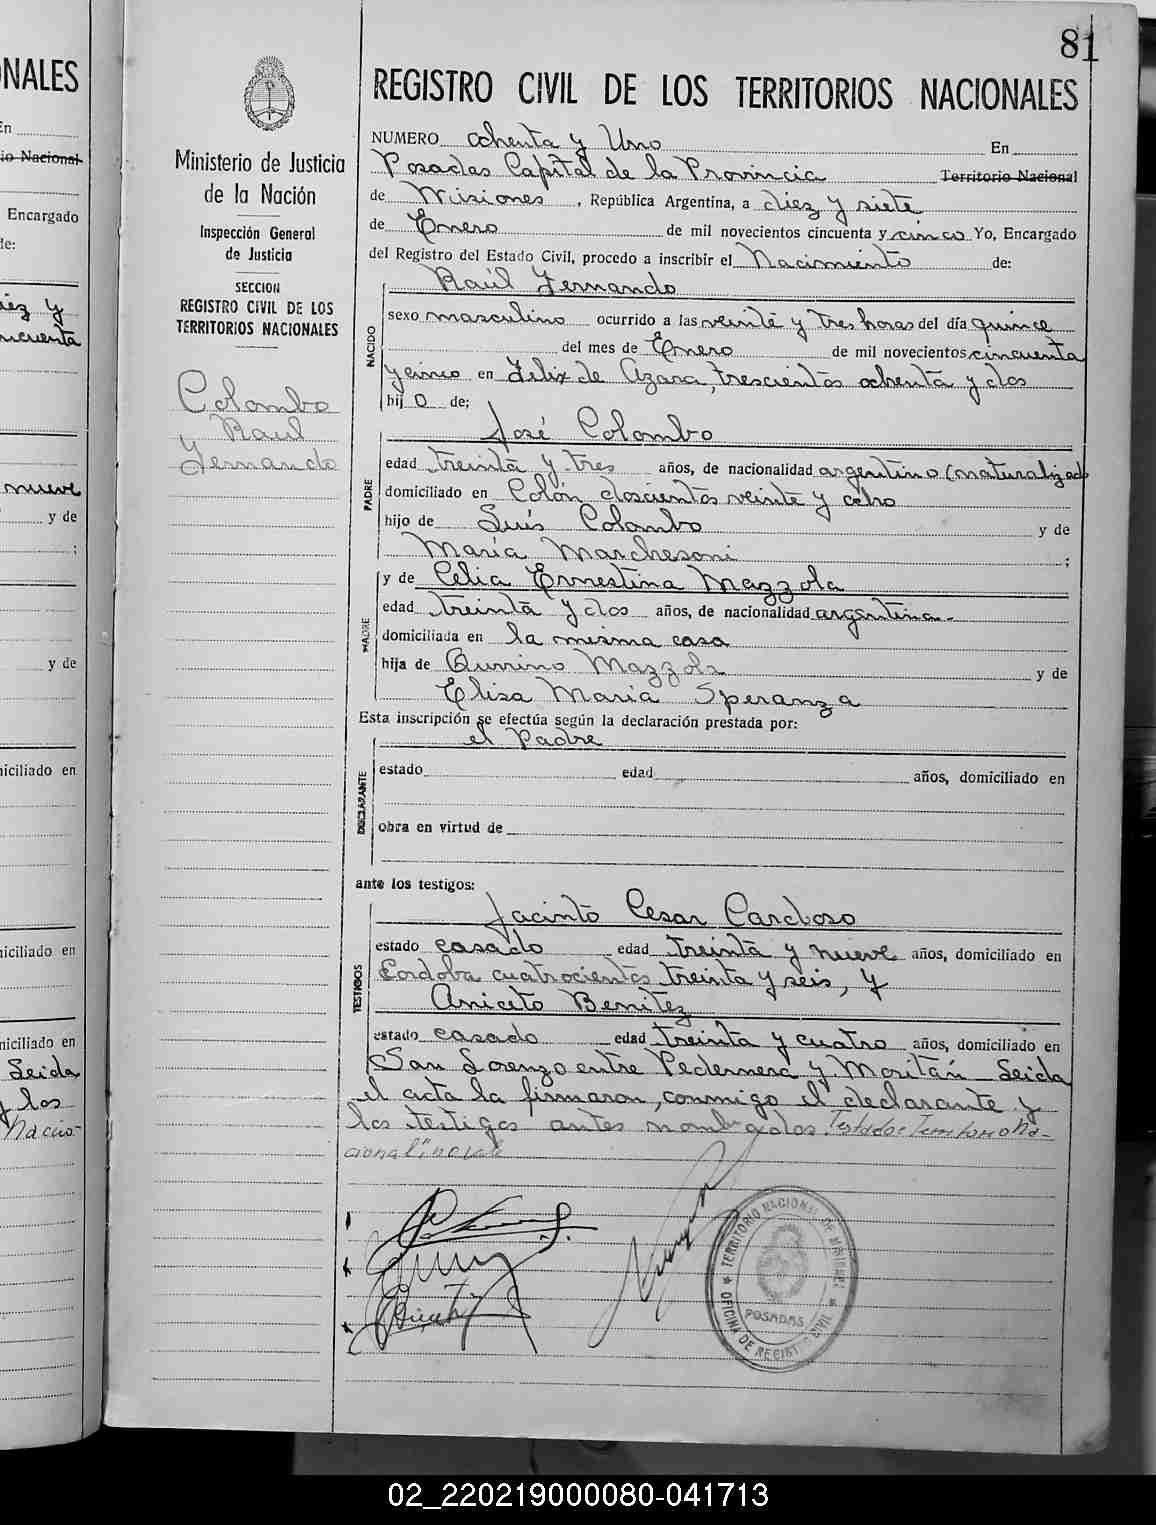 81
NALES
En
io Nacional
Encargado
de:
iez y
ncuenta
nueve
y de
;
y de
iciliado en
iciliado en
niciliado en
Leida
y los
Nacio-
Ministerio de Justicia
de la Nación
Inspección General
de Justicia
SECCION
REGISTRO CIVIL DE LOS
TERRITORIOS NACIONALES
Colombo
Raul
Fernando
REGISTRO CIVIL DE LOS TERRITORIOS NACIONALES
NUMERO ochenta y Uno En
Posadas Capital de la Provincia Territorio Nacional
de Misiones, República Argentina, a diez y siete
de Enero de mil novecientos cincuenta y cinco Yo, Encargado
del Registro del Estado Civil, procedo a inscribir el Nacimiento de:
Raúl Fernando
NACIDO
sexo masculino ocurrido a las veinte y tres horas del día quince
del mes de Enero de mil novecientos cincuenta
y cinco en Felix de Azara, trescientos ochenta y dos
hij o de;
José Colombo
PADRE
edad treinta y tres años, de nacionalidad argentino (naturalizado
domiciliado en Colón doscientos veinte y ocho
hijo de Luis Colombo y de
María Marchesoni ;
y de Celia Ernestina Mazzola
MADRE
edad treinta y dos años, de nacionalidad argentina-
domiciliada en la misma casa
hija de Quirino Mazzola y de
Elisa María Speranza
Esta inscripción se efectúa según la declaración prestada por:
el Padre
DECLARANTE
estado edad años, domiciliado en
obra en virtud de
ante los testigos:
Jacinto Cesar Cardoso
TESTIGOS
estado casado edad treinta y nueve años, domiciliado en
Cordoba cuatrocientos treinta y seis, y
Aniceto Benitez
estado casado edad treinta y cuatro años, domiciliado en
San Lorenzo entre Pedernera y Moritán Leida
el acta la firmaron, conmigo el declarante y
los testigos antes nombrados. Testado: "Territorio Na-
cional", no vale
TERRITORIO NACIONAL DE MISIONES
POSADAS
OFICINA DE REGIST. CIVIL
02_220219000080-041713